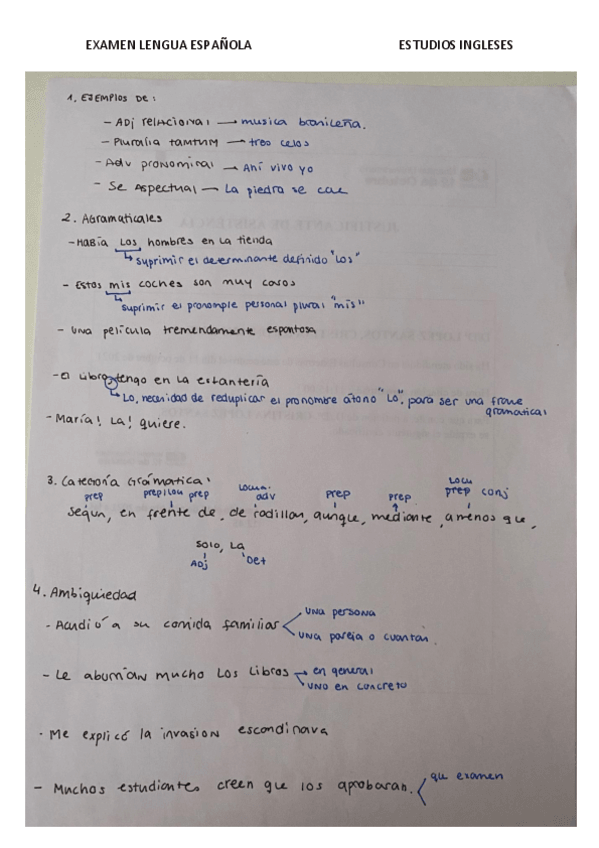 EXAMEN LENGUA ESPAÑOLA ESTUDIOS INGLESES
1. EJEMPLOS DE :
- ADJ RELACIONAL → musica brasileña.
- Pluralia TAMTUM → tres celos
- Adv pronominal → Ahí vivo yo
- Se Aspectual → La piedra se cae
2. Agramaticales
- HABÍA LOS hombres en la tienda
↳ suprimir el determinante definido "LOS"
- Estos mis coches son muy caros
↳ suprimir el pronombre personal plural "mis"
- una película tremendamente espantosa
- El libro tengo en la estantería
↳ Lo, necesidad de reduplicar el pronombre átono "Lo", para ser una frase
gramatical
- María! La! quiere.
3. Categoría Gramatical
prep prep loc prep Locu. adv prep prep Locu prep conj
según, en frente de, de rodillas, aunque, mediante, a menos que,
SOLO, LA
ADJ Det
4. Ambigüedad
- Acudió a su comida familiar
una persona
una pareja o cuantas.
- Le aburrían mucho los libros → en general
→ uno en concreto
- Me explicó la invasion escandinava
- Muchos estudiantes creen que los aprobaran.
qu examen